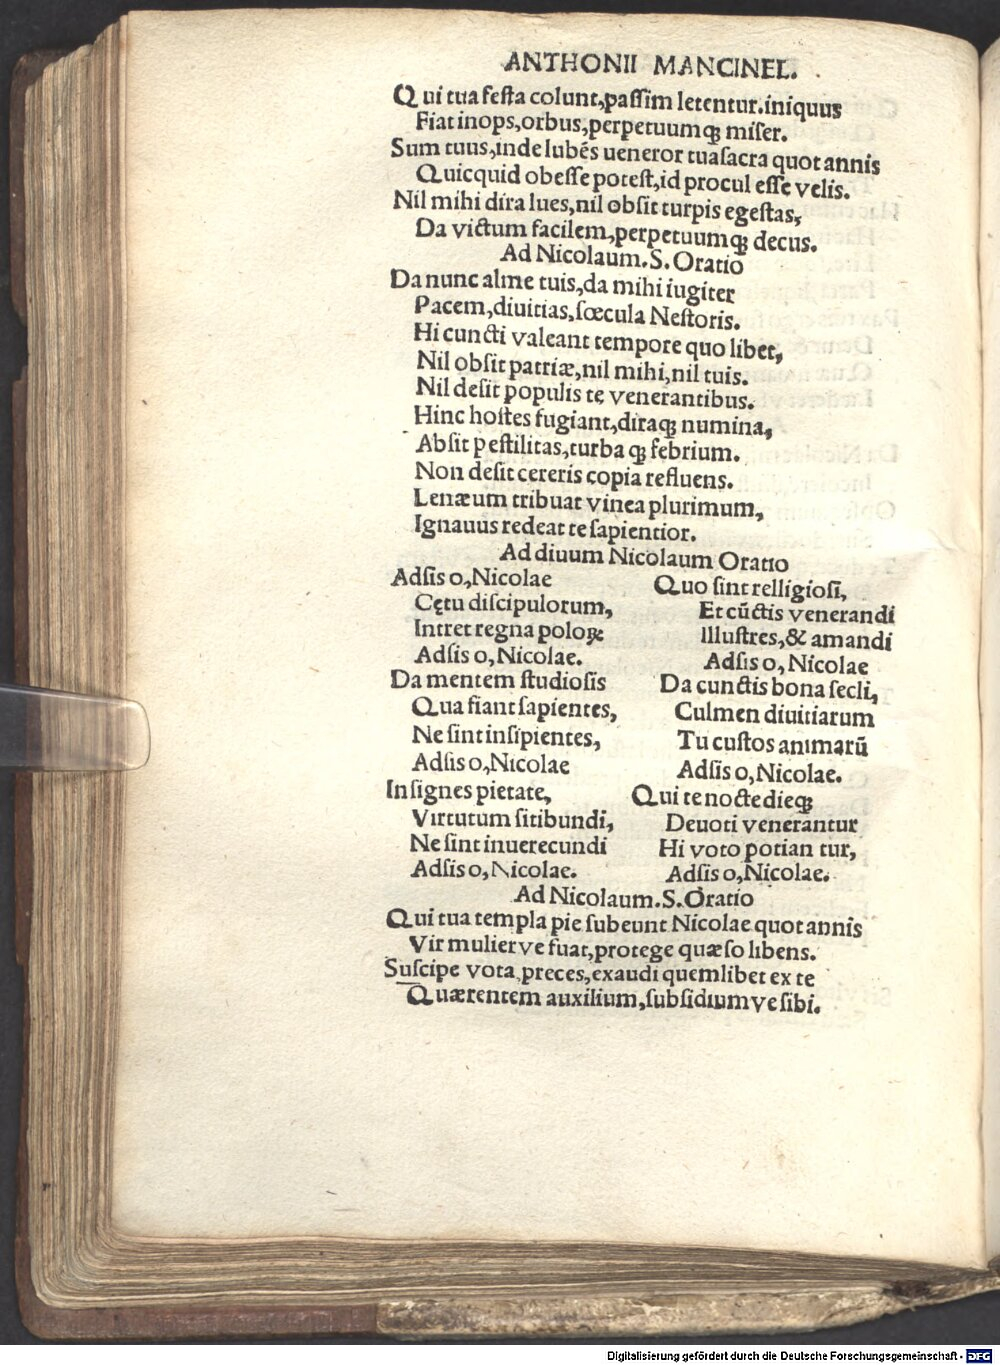 ANTHONII MANCINEL.
Qui tua festa colunt,passim letentur.iniquus
Fiat inops,orbus,perpetuumqꝫ miser.
Sum tuus,inde lubẽs ueneror tua sacra quot annis
Quicquid obesse potest,id procul esse velis.
Nil mihi dira lues,nil obsit turpis egestas,
Da victum facilem,perpetuumqꝫ decus.
Ad Nicolaum.S.Oratio
Da nunc alme tuis,da mihi iugiter
Pacem,diuitias,sœcula Nestoris.
Hi cuncti valeant tempore quo libet,
Nil obsit patriæ,nil mihi,nil tuis.
Nil desit populis te venerantibus.
Hinc hostes fugiant,diraqꝫ numina,
Absit pestilitas,turba qꝫ febrium.
Non desit cereris copia refluens.
Lenæum tribuat vinea plurimum,
Ignauus redeat te sapientior.
Ad diuum Nicolaum Oratio
Adsis o,Nicolae
Cętu discipulorum,
Intret regna poloꝝ
Adsis o,Nicolae.
Da mentem studiosis
Qua fiant sapientes,
Ne sint insipientes,
Adsis o,Nicolae
Insignes pietate,
Virtutum sitibundi,
Ne sint inuerecundi
Adsis o,Nicolae.
Quo sint relligiosi,
Et cũctis venerandi
Illustres,& amandi
Adsis o,Nicolae
Da cunctis bona secli,
Culmen diuitiarum
Tu custos animarũ
Adsis o,Nicolae.
Qui te nocte dieqꝫ
Deuoti venerantur
Hi voto potian tur,
Adsis o,Nicolae.
Ad Nicolaum.S.Oratio
Qui tua templa pie subeunt Nicolae quot annis
Vir mulier ve fuat,protege quæso libens.
Suscipe vota preces,exaudi quemlibet ex te
Quærentem auxilium,subsidium ve sibi.
Digitalisierung gefördert durch die Deutsche Forschungsgemeinschaft - DFG